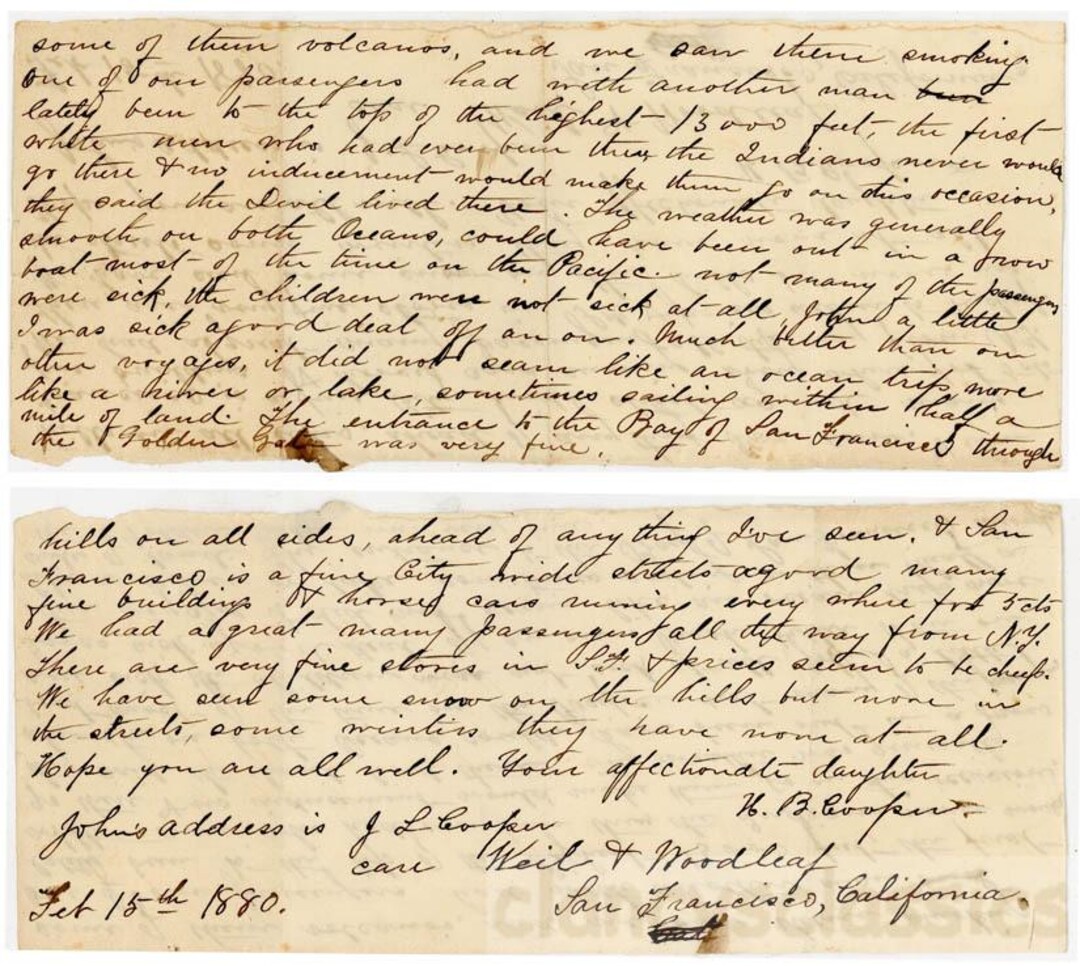 some of them volcanos, and we saw them smoking
one of our passengers had with another man been
lately been to the top of the highest 13000 feet, the first
white men who had ever been there, the Indians never would
go there & no inducement would make them go on this occasion,
they said the Devil lived there. The weather was generally
smooth on both Oceans, could have been out in a row
boat most of the time on the Pacific. not many of the passengers
were sick, the children were not sick at all, John a little
I was sick a good deal off an on. Much better than our
other voyages, it did not seam like an ocean trip, more
like a river or lake, sometimes sailing within half a
mile of land. The entrance to the Bay of San Francisco through
the Golden Gate was very fine.
hills on all sides, ahead of anything I've seen. & San
Francisco is a fine City wide streets a good many
fine buildings & horse cars running every where for 5 cts
We had a great many passengers all the way from N.Y.
There are very fine stores in S.F. & prices seem to be cheap.
We have seen some snow on the hills but none in
the streets, some winters they have none at all.
Hope you are all well. Your affectionate daughter
H. B. Cooper.
John's address is J L Cooper
care Weil & Woodleaf
Feb 15th 1880.
San Francisco, California
clamsclassics